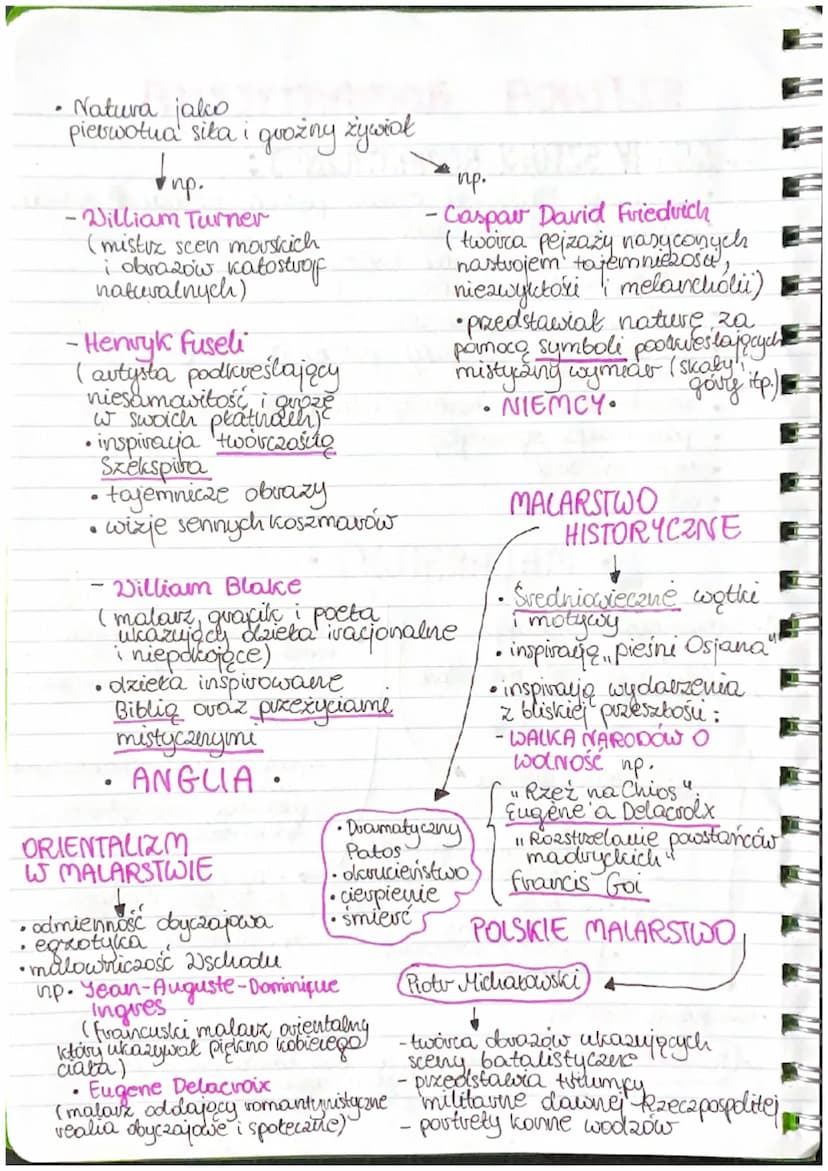 • Natura jako
pierwotna siła i groźny żywioł
np.
- William Turner
(mistrz scen morskich
i obrazów katastrof
naturalnych)
- Henryk Fuseli
(artysta podkreślający
niesamowitość i grozę
w swoich płatnach)
• inspiracja twórczością
Szekspira
• tajemnicze obrazy
• wizje sennych koszmarów
- William Blake
(malarz, grafik i poeta
ukazujący dzieła iracjonalne
i niepokojące)
• dzieła inspirowane
Biblią oraz przeżyciami
mistycznymi
• ANGLIA •
np.
- Caspar David Friedrich
(twórca pejzaży nasyconych
nastrojem tajemniczości,
niezwykłości i melancholii)
• przedstawiał naturę za
pomocą symboli podkreślających
mistyczny wymiar (skały,
góry itp.)
• NIEMCY •
MALARSTWO
HISTORYCZNE
• Średniowieczne wątki
i motywy
• inspirają „pieśni Osjana"
• inspirają wydarzenia
z bliskiej przeszłości:
- WALKA NARODÓW O
WOLNOŚĆ np.
„Rzeź na Chios"
Eugène'a Delacroix
„Rozstrzelanie powstańców
madryckich"
Francis Goi
• Dramatyczny
Patos
• okrucieństwo
• cierpienie
• śmierć
ORIENTALIZM
W MALARSTWIE
• odmienność obyczajowa
• egzotyka
• malowniczość Wschodu
np. Jean-Auguste-Dominique
Ingres
(francuski malarz orientalny
który ukazywał piękno kobiecego
ciała)
• Eugene Delacroix
(malarz oddający romantynistyczne
realia obyczajowe i społeczne)
POLSKIE MALARSTWO
Piotr Michałowski
- twórca obrazów ukazujących
sceny batalistyczne
- przedstawia triumfy
militarne dawnej Rzeczpospolitej
- portrety konne wodzów